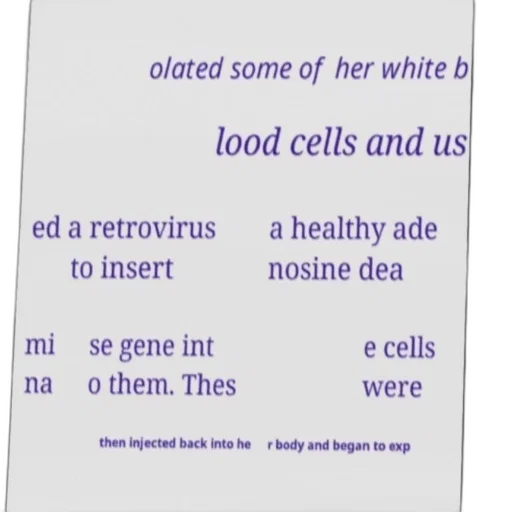 olated some of her white b
lood cells and us
ed a retrovirus
to insert
a healthy ade
nosine dea
mi
na
se gene int
o them. Thes
e cells
were
then injected back into he
r body and began to exp